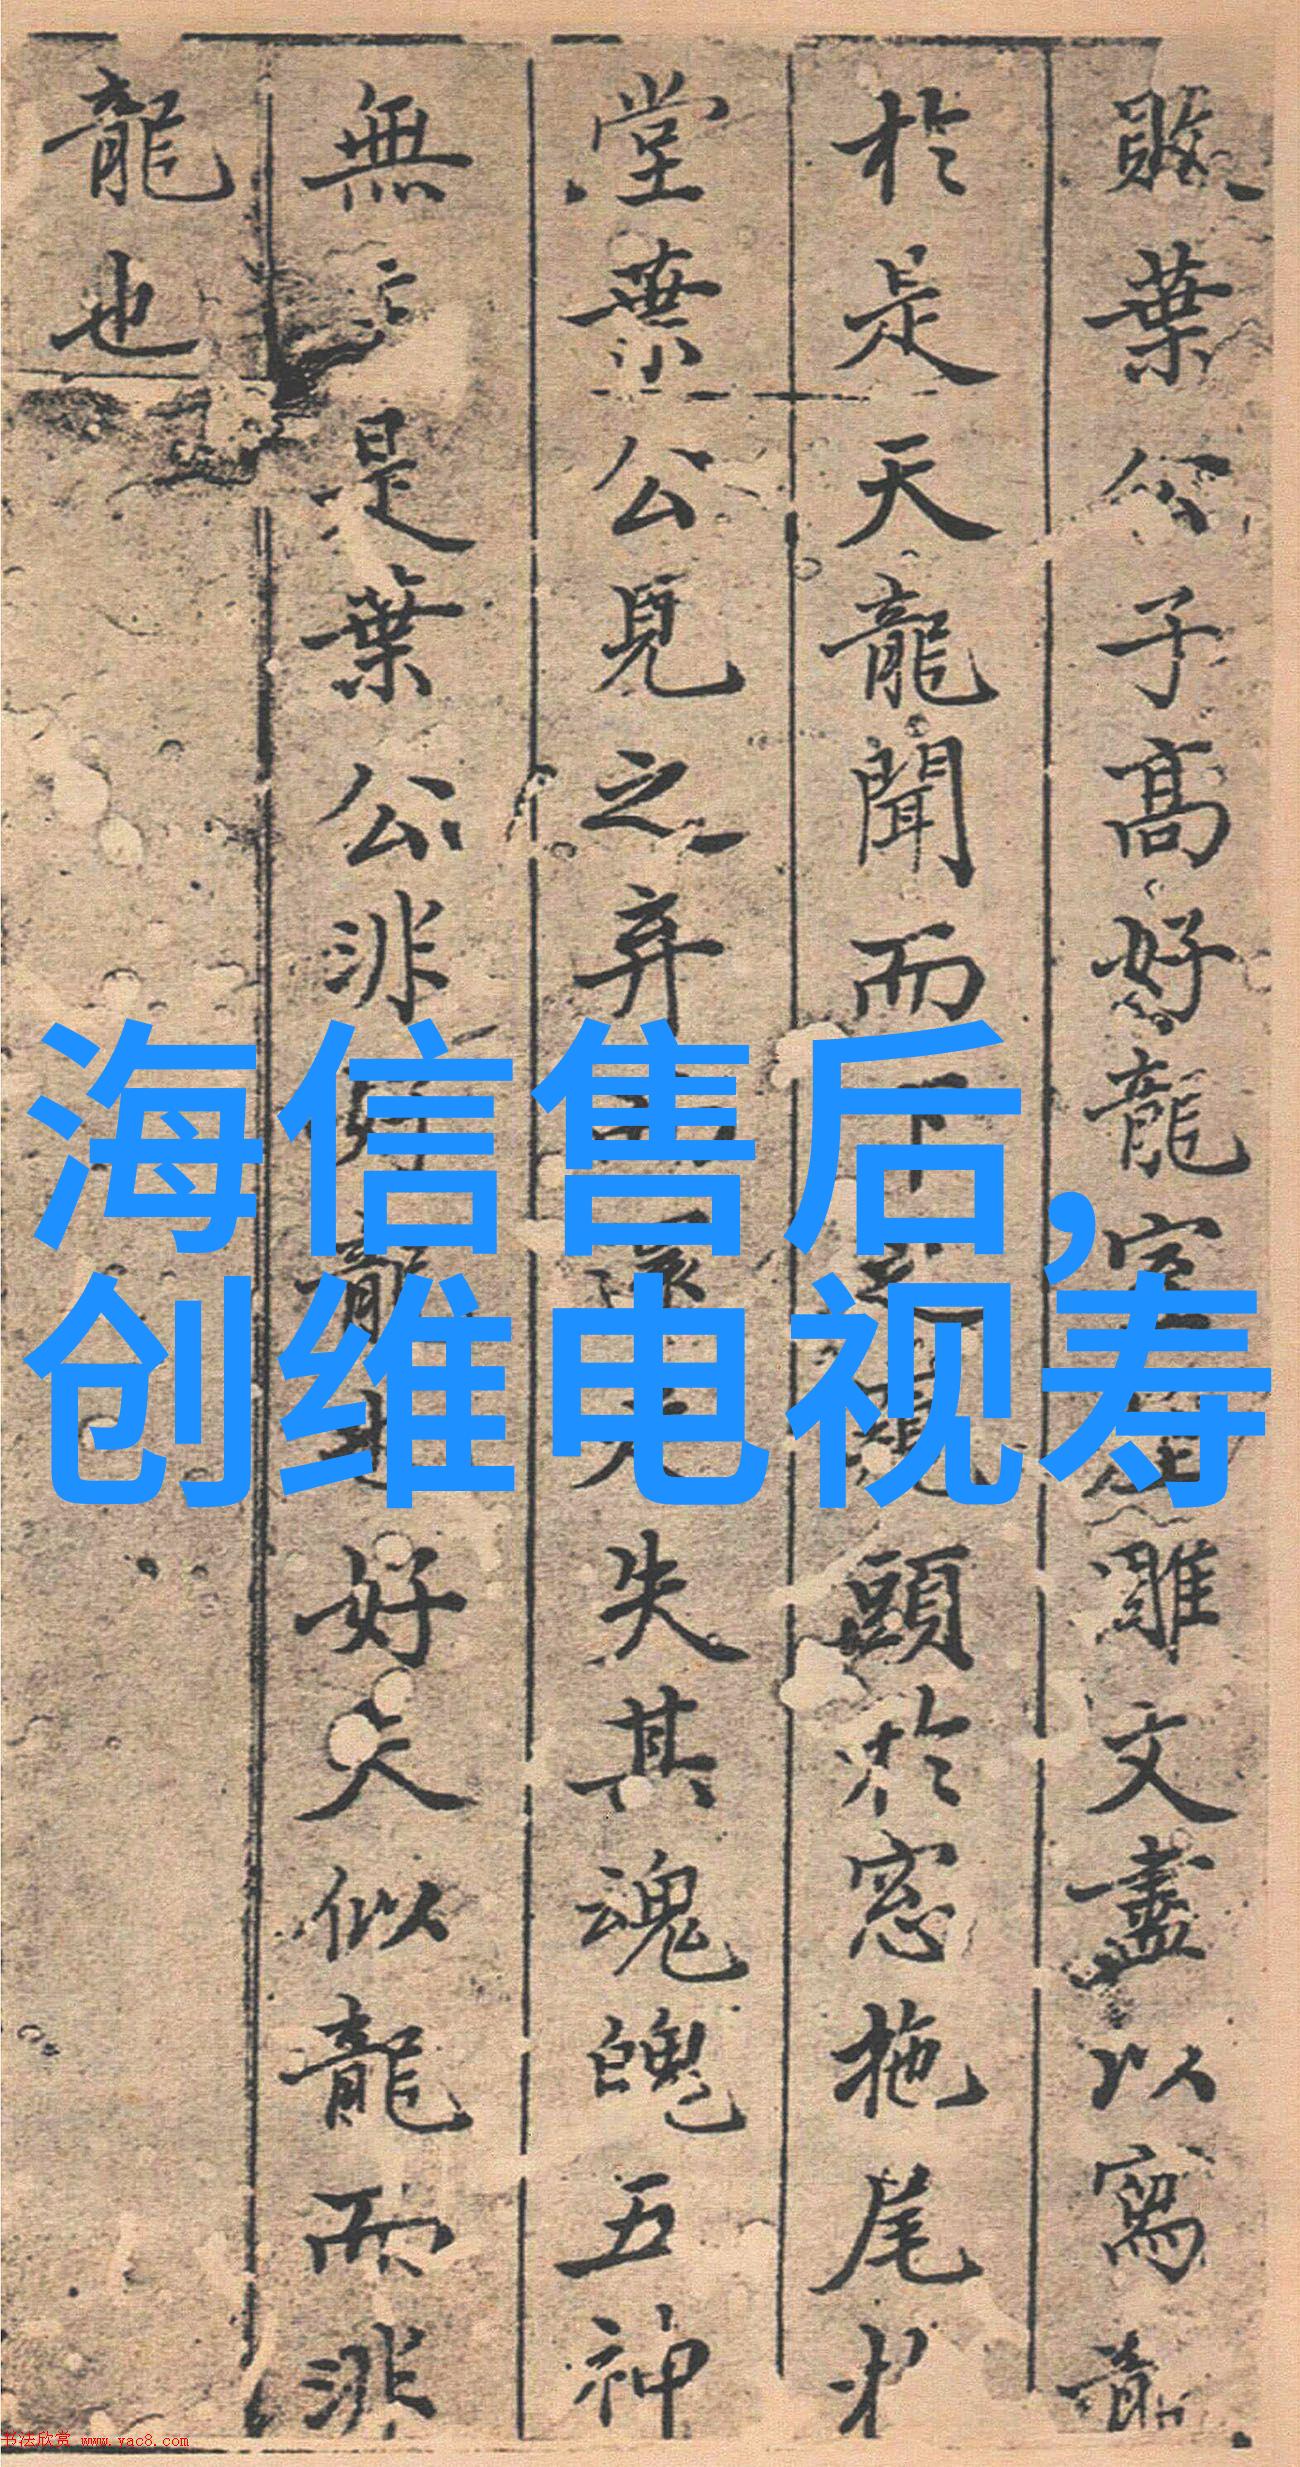 敗葉公子高好龍室雕文盡以寫龍
於是天龍聞而下之頭於窓拖尾於
堂葉公見之弃而還走失其魂魄五神
無主是葉公非好龍也好夫似龍而非
龍也
海信售后,
创维电视寿
书法欣赏 www.yac8.com